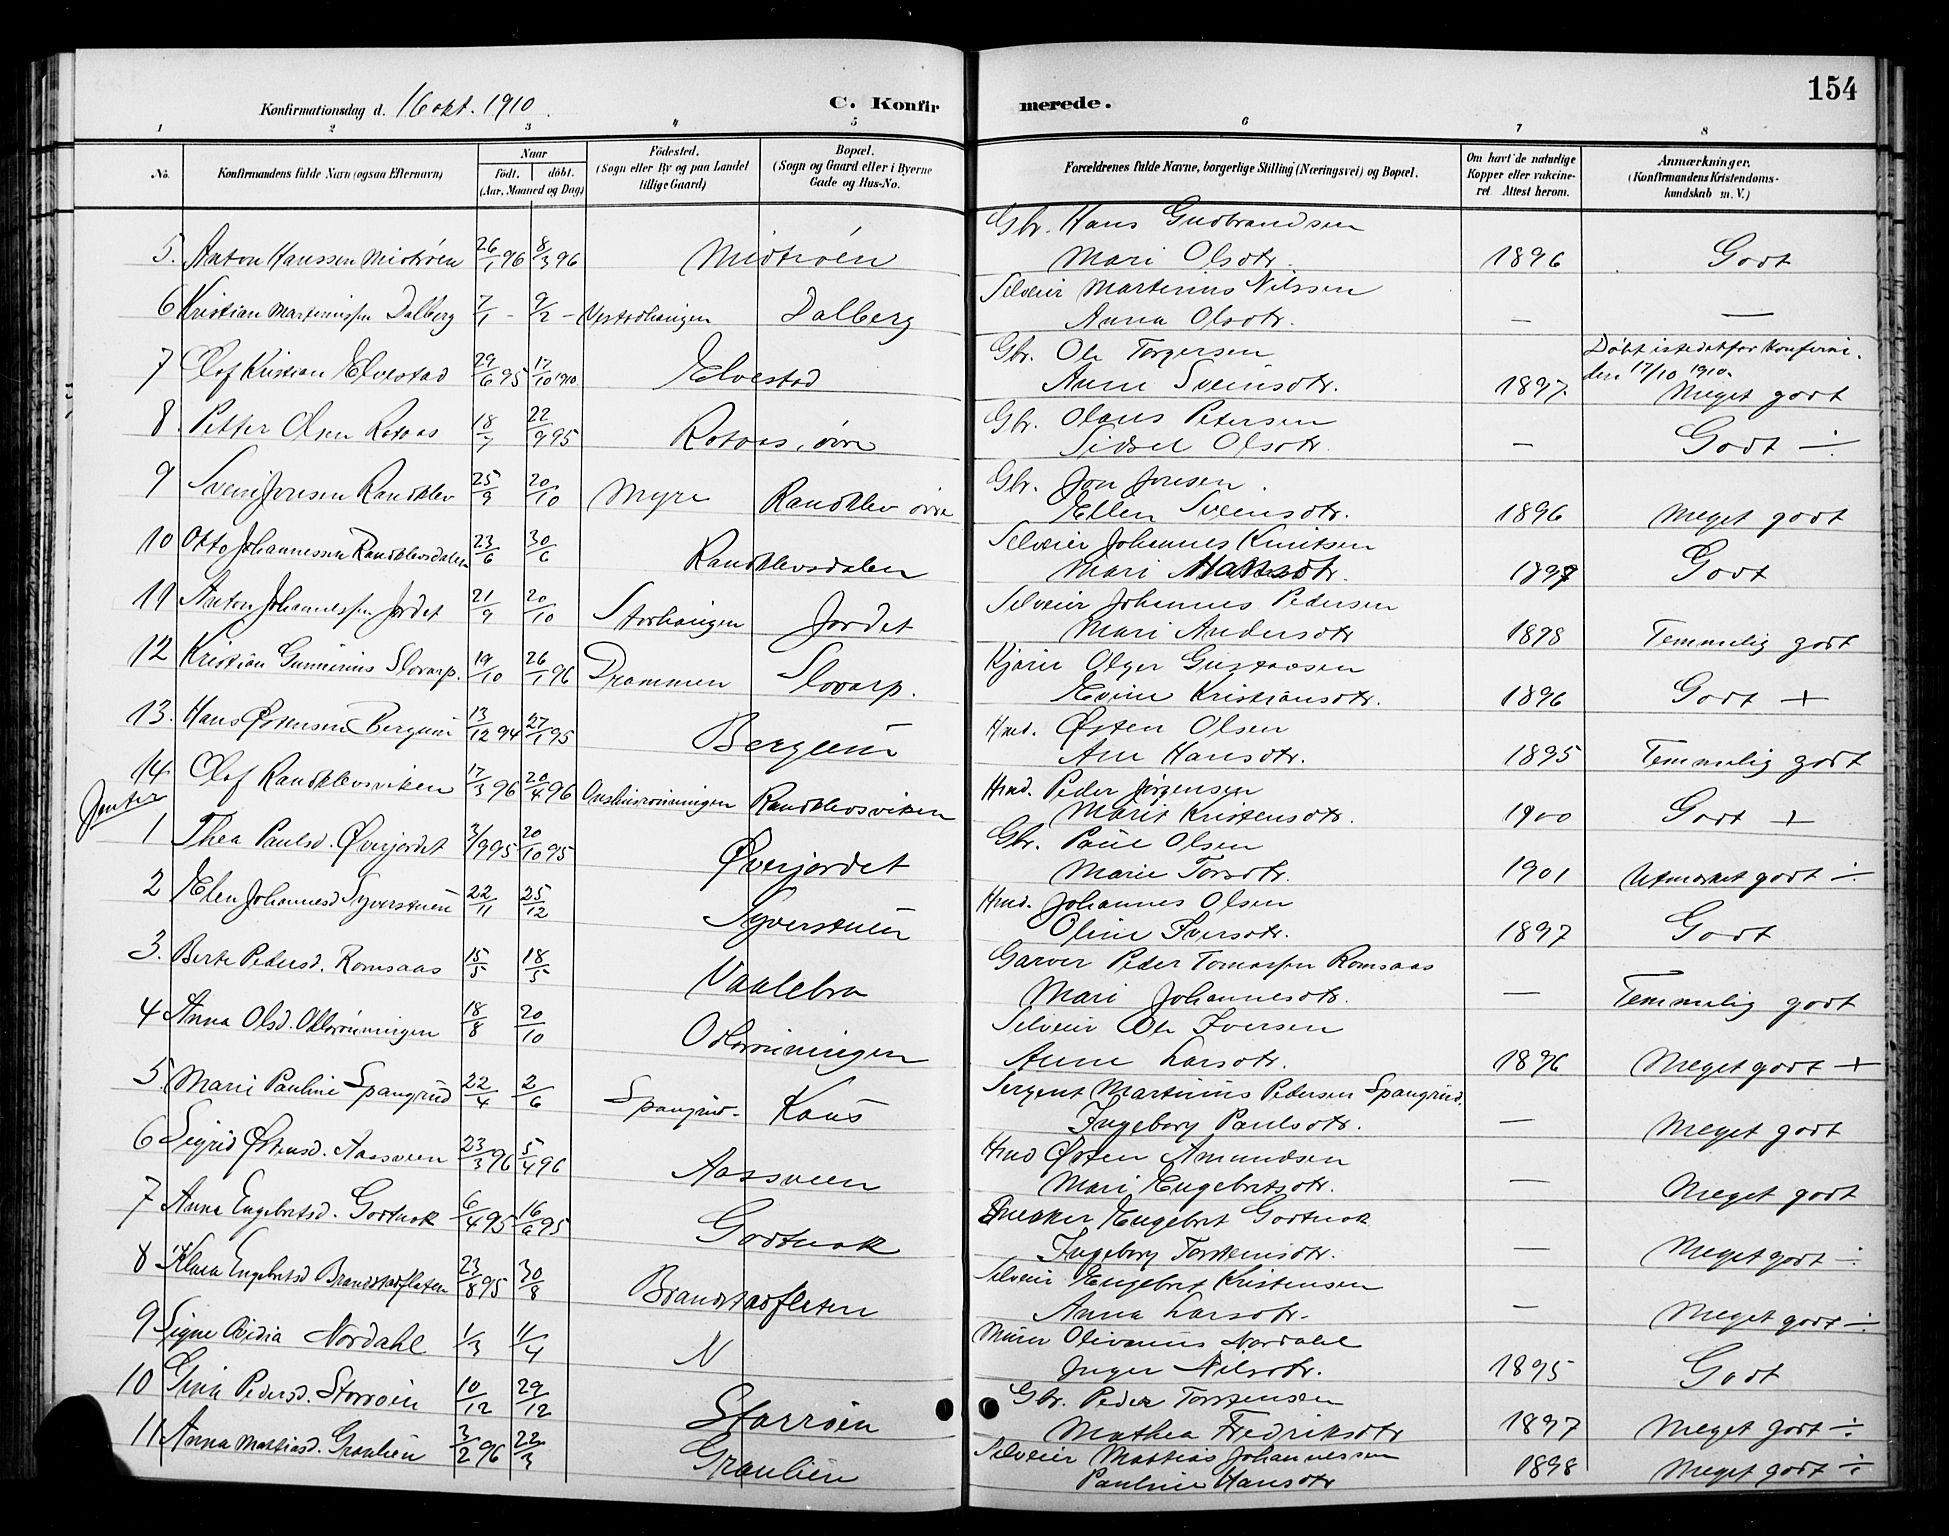 154
Konfirmationsdag d. 16 okt. 1910.
C. Konfirmerede.
1 2 3 4 5 6 7 8
No.
Konfirmandens fulde Navn (ogsaa Efternavn)
Naar
födt. döbt.
(Aar, Maaned og Dag)
Födested.
(Sogn eller By og paa Landet
tillige Gaard)
Bopæl.
(Sogn og Gaard eller i Byerne
Gade og Hus-No.
Forældrenes fulde Navne, borgerlige Stilling (Næringsvei) og Bopæl.
Om havt de naturlige
Kopper eller vakcine-
ret. Attest herom.
Anmærkninger,
(Konfirmandens Kristendoms-
kundskab m. V.)
Gbr. Hans Gudbrandsen
5. Anton Hanssen Midtröen 26/1 96 8/3 96 Midtröen Mari Olsdtr. 1896 Godt
Selveier Martinius Nilssen
6 Kristian Martiniussen Dalberg 7/1 - 9/2 - Dalberg Anna Olsdtr. — —
Gbr. Ole Torgersen Döbt istedetfor Konfirmi.
7 Olof Kristian Elvestad 29/6 95 17/10 1910 Elvestad Anne Svensdtr. 1897. den 17/10 1910. Meget godt
Gbr. Olaus Petersen
8. Petter Olsen Rotaas 18/7 22/9 95 Rotaas, övre Sidsel Olsdtr. — Godt ÷
Gbr. Jon Jonsen.
9 Svein Jonsen Randklev 25/9 20/10 Myre Randklev övre Ellen Svensdtr. 1896 Meget godt
Selveier Johannes Knutsen
10 Otto Johannessen Randklevsdalen 23/6 30/6 Randklevsdalen Mari Hansdtr. 1897 Godt
Selveier Johannes Pedersen
11 Anton Johannessen Jordet 21/9 20/10 Storhaugen Jordet Mari Andersdtr 1898 Temmelig godt
Olger Gustavsen
12 Kristian Gunnerius Slovarp. 19/10 26/1 96 Drammen Slovarp. Kristiansdtr. 1896 Godt +
Hmd. Östen Olsen
13. Hans Östensen Bergum 13/12 94 27/1 95 Bergum Ane Hansdtr. 1895 Temmelig godt
Hmd. Peder Jörgensen
14 Olof Randklevsviken 17/3 96 20/4 96 Randklevsviken Marit Kristensdtr. 1900 Godt +
Jenter
Gbr. Paul Olsen
1 Thea Paulsd. Överjordet 3/9 95 20/10 95 Överjordet Marie Torsdtr. 1901 Utmerket godt ÷
Hmd. Johannes Olsen
2 Elen Johannesd Syverstuen 22/11 25/12 Syverstuen Oline Iversdtr. 1897 Godt
Garver Peder Tomassen Romsaas
3. Berte Pedersd. Romsaas 15/5 18/5 Vaalebro Mari Johannesdtr. — Temmelig godt
Selveier Ole Iversen
4 Anna Olsd. 18/8 20/10 Anne Larsdtr. 1896 Meget godt +
Sergent Martinius Pedersen Spangrud.
5. Marie Pauline Spangrud 22/4 2/6 Spangrud. Ingeborg Paulsdtr. — Meget godt
Hmd Östen Amundsen
6 Sigrid Östensd. Aassveen 23/3 96 5/4 96 Aassveen Mari Engebretsdtr. — Meget godt
Snekker Engebret Godtnok
7 Anna Engebretsd. Godtnok 6/4 95 16/6 95 Godtnok Ingeborg Torstensdtr. — Meget godt ÷
Selveier Engebret Kristensen
8 Klara Engebretsd Brandstadflaten 23/8 95 30/8 Brandstadflaten Anna Larsdtr. — Meget godt ÷
Murer Olivarius Nordahl
9 Signe Nordahl 1/3 11/4 N Inger Nilsdtr. 1895 Godt
Gbr. Peder Torstensen
10 Gina Pedersd. Storröen 10/12 29/12 Storröen Mathea Fredriksdtr 1897 Meget godt ÷
Selveier Mattias Johannessen
11 Anna Mattiasd. Graulien 3/2 96 22/3 Graulien Pauline Hansdtr 1898 Meget godt ÷